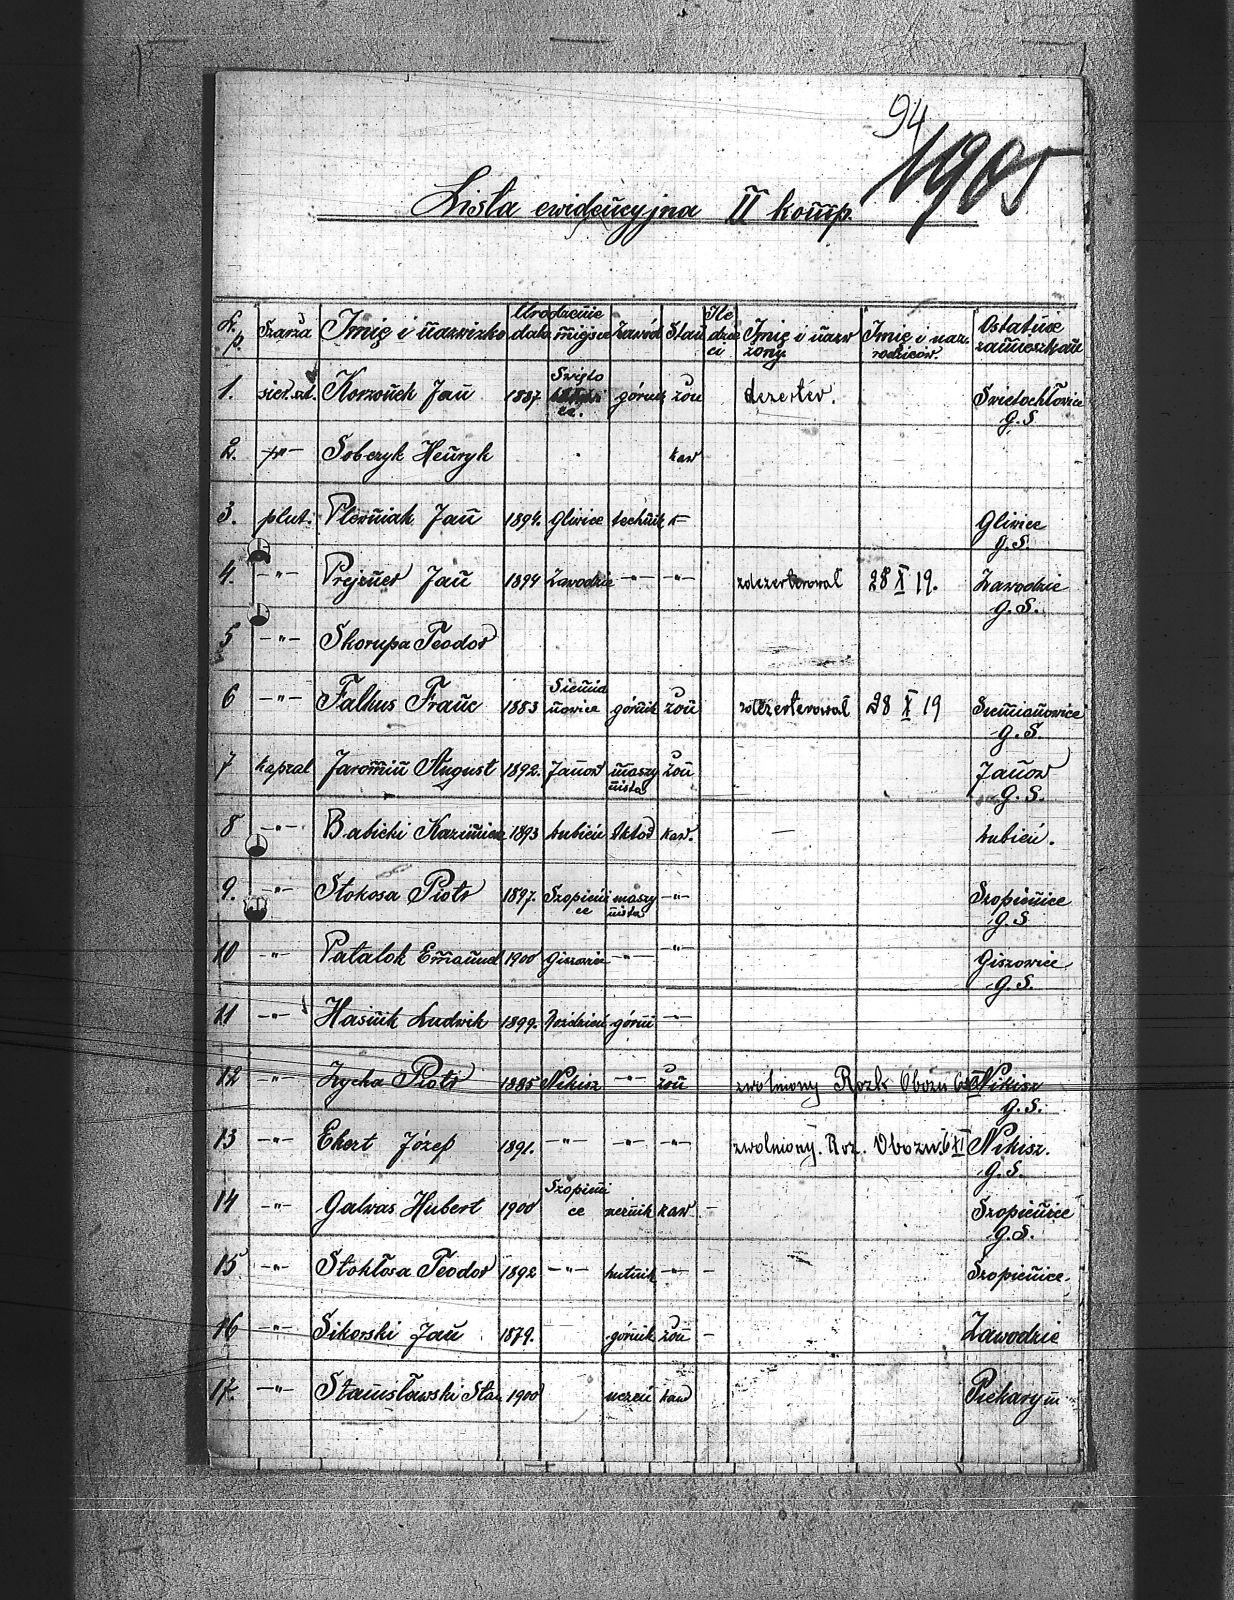 94
1905
Lista ewidencyjna II komp.
L. p. Szarża Imię i nazwizko Urodzenie data miejsce Zawód Stan Ile dzieci Imię i nazw żony Imię i naz. rodziców Ostatnie zamieszkan
1. sier. szt. Korzonek Jan 1887 Święto ce. górnik żon dezerter. Świetochłowice g. S.
2. -"- Sobczyk Henryk kaw
3. plut. Plewniak Jan 1894. Gliwice technik k- Gliwice g. S.
4. -"- Prejsner Jan 1894 Zawodzie -"- -"- zdezerterował 28 X 19. Zawodzie g. S.
5 -"- Skorupa Teodor
6 -"- Falkus Franc 1883 Siemianowice górnik żon zdezerterował 28 X 19 Siemianowice g. S.
7 kapral Jaromin August 1892. Janow maszynista żon Janow g. S.
8 -"- Babicki Kazimierz 1893 Łubień kaw. — Łubień.
9. -"- Stokosa Piotr 1897. Szopienice maszynista -"- Szopienice g. S
10 -"- Patalok Emanuel 1900 Giszowice -"- -"- Giszowice g. S.
11 -"- Hasnik Ludwik 1899. Rozdzień górni -"-
12 -"- Zycha Piotr 1885 Nikisz -"- żon zwolniony Rozk Obozu 6 XI Nikisz g. S.
13 -"- Ekert Józef 1891. -"- -"- -"- zwolniony. Roz. Obozu. 6 XI Nikisz. g. S.
14 -"- Galwas Hubert 1900 Szopienice kaw - Szopienice g. S.
15 -"- Stokłosa Teodor 1892 -"- hutnik -"- - Szopienice.
16 -"- Sikorski Jan 1879. górnik żon - Zawodzie
17. -"- Stanisławski Stan 1900 uczeń kaw Piekary